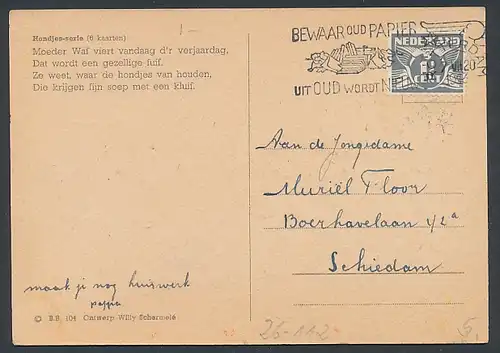 Hondjes-serie (6 kaarten)
Moeder Waf viert vandaag d'r verjaardag,
Dat wordt een gezellige fuif.
Ze weet, waar de hondjes van houden,
Die krijgen fijn soep met een kluif.
1-
BEWAAR OUD PAPIER
UIT OUD WORDT
NEDERLAND
Aan de Jongedame
Muriël Floor
Boerhavelaan 42a
Schiedam
maak je nog huiswerk
pappa
© B.B. 104 Ontwerp Willy Schermelé
26-112